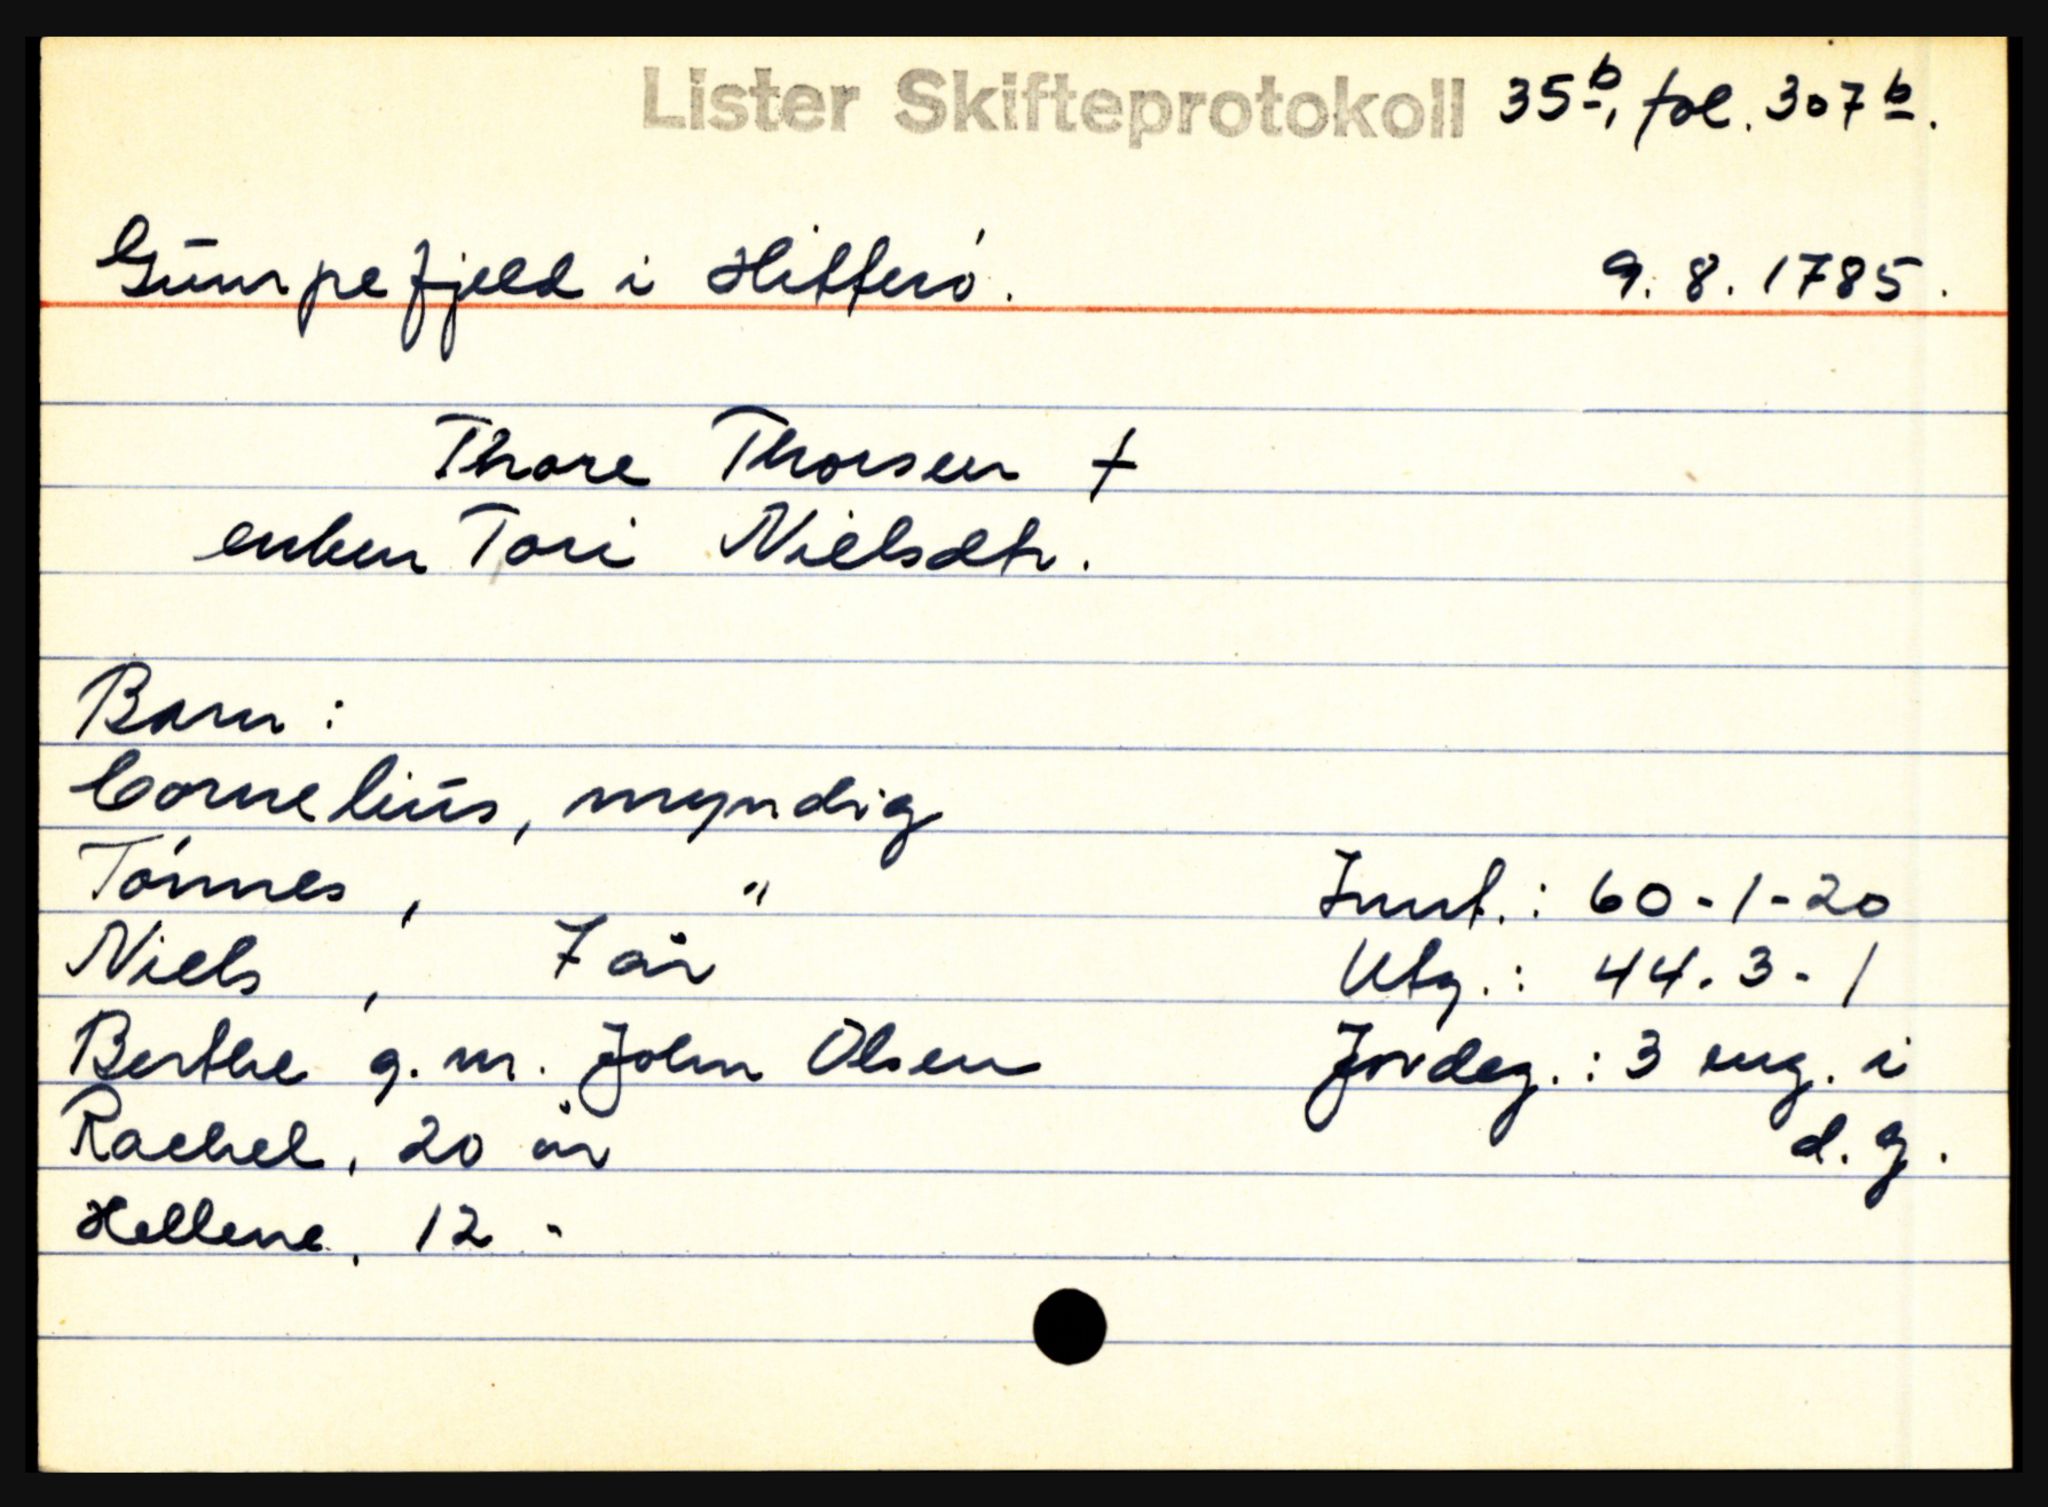 Lister Skifteprotokoll 35b, fol. 307b.
Gumpefjeld i Hitterö. 9.8.1785.
Thore Thorsen †
enken Tori Nielsdtr.
Barn:
Cornelius, myndig
Tönnes, " Innt.: 60-1-20
Niels, 7 år Utg.: 44-3-1
Berthe g.m. John Olsen Jordeg.: 3 eng. i
Rachel, 20 år d.g.
Hellene, 12 "